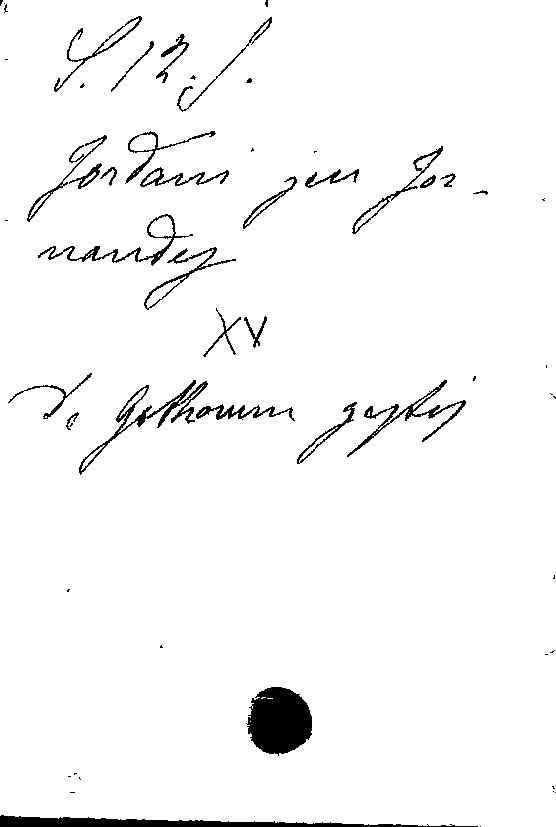 S. 12. f.
Jordani seu Jor-
nandes
XV
de Gothorum gestis